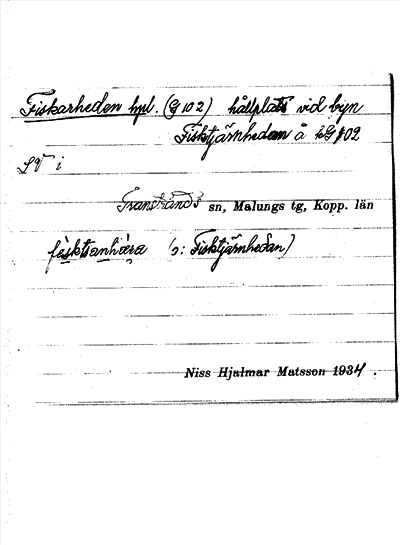 Fiskarheden hpl. (G 102) hållplats vid byn
Fisktjärnhedan å
SV i
Transtrands sn, Malungs tg, Kopp. län
(ɔ: Fisktjärnhedan)
Niss Hjalmar Matsson 1934.